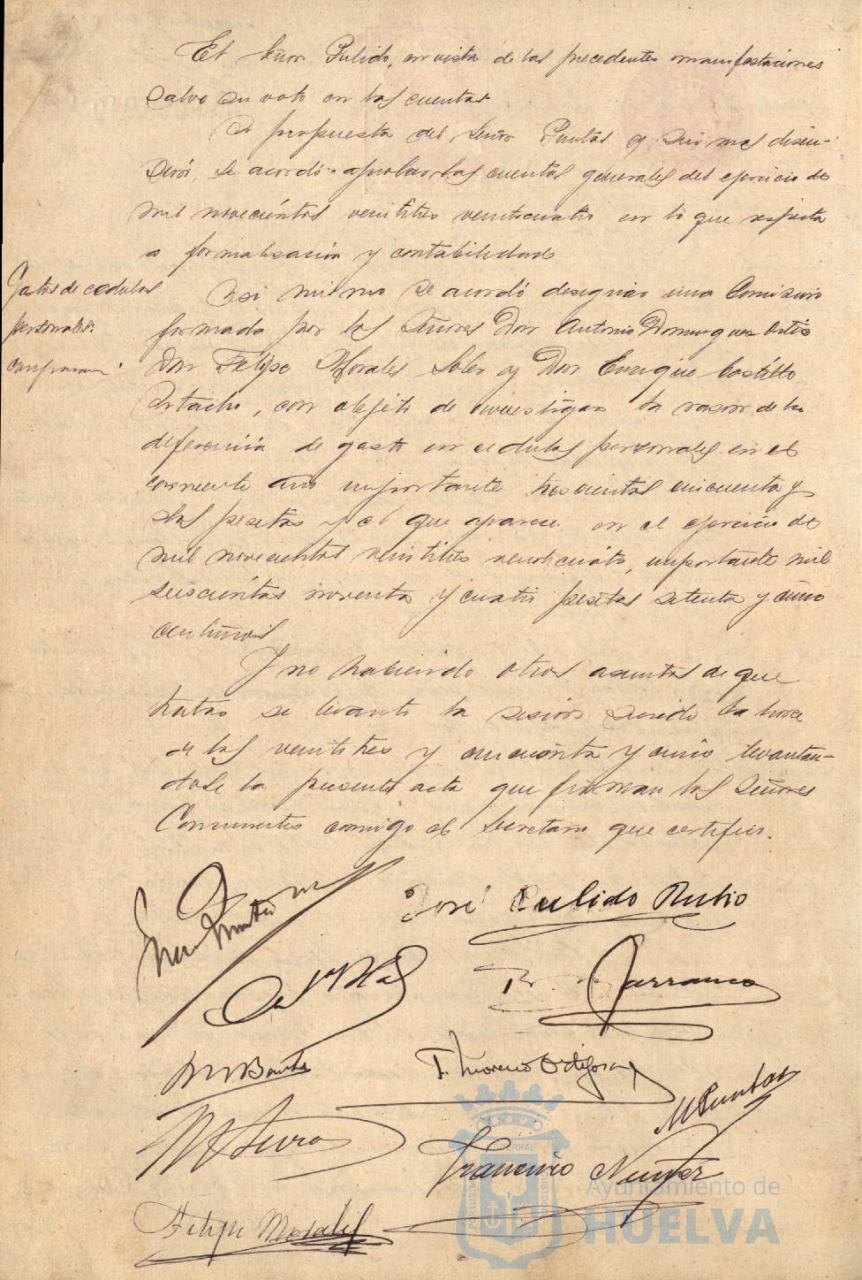 El Señor Pulido, en vista de las precedentes manifestaciones
salvo su voto en las cuentas
A propuesta del Señor Puntas y sin mas discu-
sión, se acordó aprobar las cuentas generales del ejercicio de
mil novecientos veintitres veinticuatro en lo que respecta
a formalización y contabilidad
Gastos de cedulas
personales
Asi mismo se acordó designar una Comision
formada por los Señores Don Antonio Dominguez Ortiz
Don Felipe Morales Soler y Don Enrique Castillo
Artacho, con objeto de investigar la razon de la
diferencia de gasto en cedulas personales en el
corriente año importante trescientas cincuenta y
pesetas y el que aparece en el ejercicio de
mil novecientos veintitres veinticuatro, importante mil
seiscientas noventa y cuatro pesetas setenta y cinco
centimos
Y no habiendo otros asuntos de que
tratar se levantó la sesion siendo la hora
de las veintitres y cincuenta y cinco levantan-
dose la presente acta que firman los Señores
Concurrentes conmigo el Secretario que certifico.
José Pulido Rubio
Garranco
T. Moreno Ortega
M Puntas
Francisco Nuñez
Felipe Morales
Ayuntamiento de
HUELVA